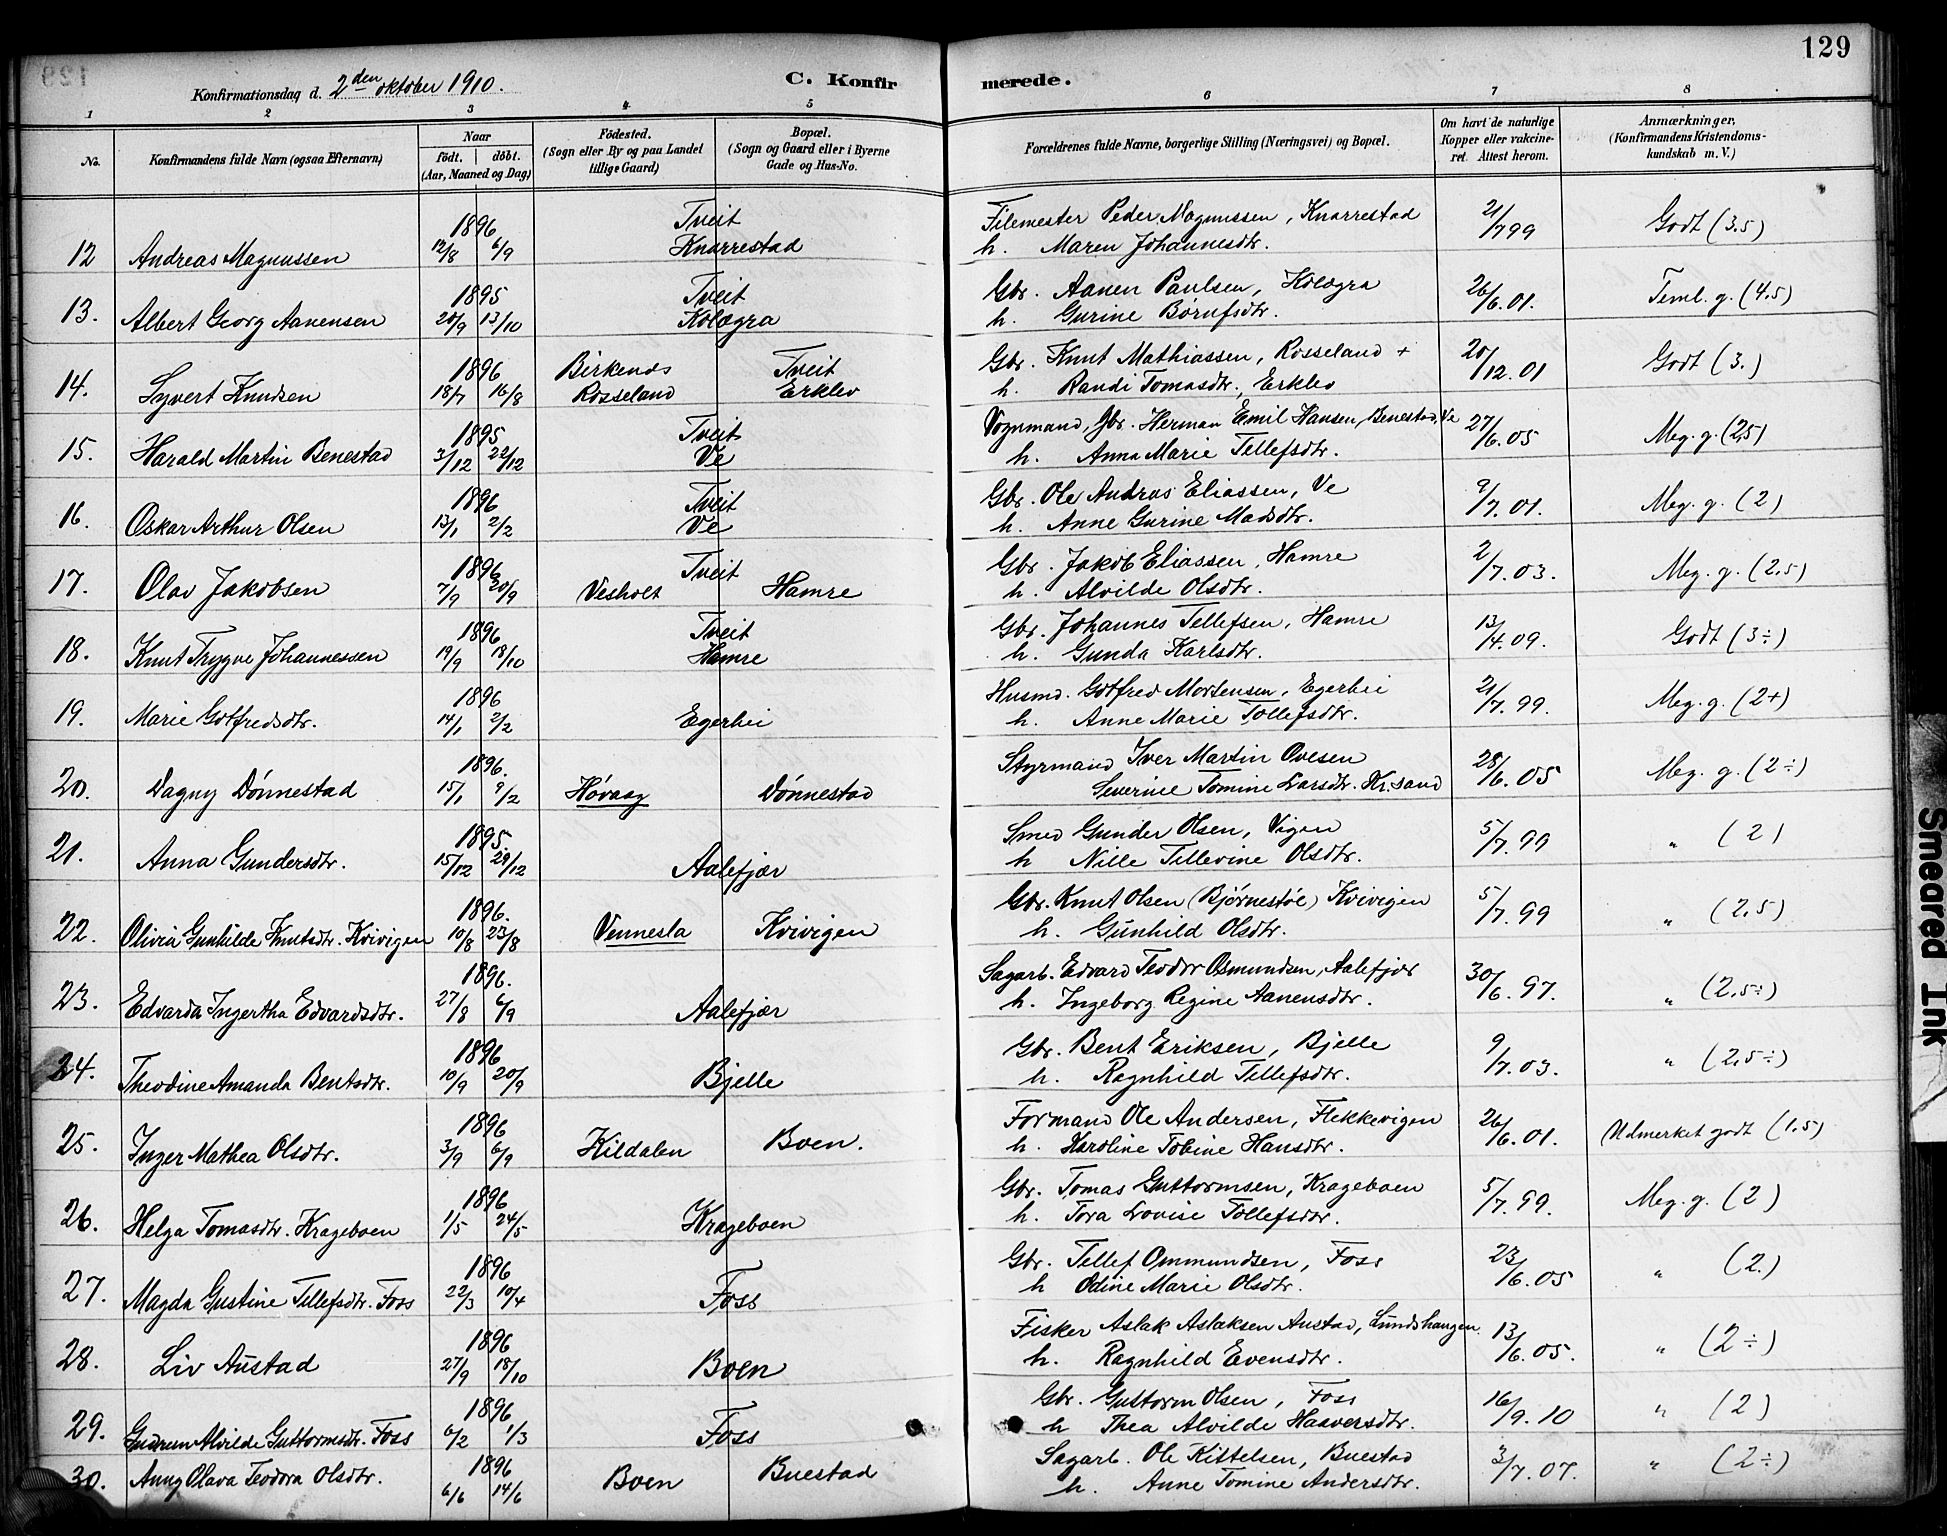 129
Konfirmationsdag d. 2den oktober 1910.
C. Konfirmerede.
1 2 3 4 5 6 7 8
No.
Konfirmandens fulde Navn (ogsaa Efternavn)
Naar
födt. döbt.
(Aar, Maaned og Dag)
Födested.
(Sogn eller By og paa Landet
tillige Gaard)
Bopæl.
(Sogn og Gaard eller i Byerne
Gade og Hus-No.
Forældrenes fulde Navne, borgerlige Stilling (Næringsvei) og Bopæl.
Om havt de naturlige
Kopper eller vakcine-
ret. Attest herom.
Anmærkninger,
(Konfirmandens Kristendoms-
kundskab m. V.)
1896 Tveit Filemester Peder Magnussen, Knarrestad 21/7 99 Godt (3.5)
12 Andreas Magnussen 12/8 6/9 Knarrestad h. Maren Johannesdtr.
1895 Tveit Gbr. Aanen Paulsen, Kologra 26/6.01. Teml. g. (4,5)
13. Albert Georg Aanensen 20/9 13/10 Kologra h. Gurine Børufsdtr.
1896 Birkenes Tveit Gbr. Knut Mathiassen, Rosseland + 20/12.01 Godt (3.)
14. Syvert Knudsen 18/7 16/8 Rosseland Erklev h. Randi Tomasdtr., Erklev
1895 Tveit Vognmand, Gbr. Herman Emil Hansen, Benestad, Ve 27/6.05 Meg. g. (2,5)
15. Harald Martin Benestad 3/12 22/12 Ve h. Anna Marie Tellefsdtr.
1896 Tveit Gbr. Ole Andras Eliassen, Ve 9/7.01. Meg. g. (2)
16. Oskar Arthur Olsen 13/1 2/2 Ve h. Anne Gurine Madsdtr.
1896 Tveit Gbr. Jakob Eliassen, Hamre 2/7.03. Meg. g. (2,5)
17. Olav Jakobsen 7/9 20/9 Vesholt Hamre h. Alvilde Olsdtr.
1896 Tveit Gbr. Johannes Tellefsen, Hamre 13/4.09. Godt (3÷)
18. Knut Trygve Johannessen 19/9 18/10 Hamre h. Gunda Karlsdtr.
1896 Husmd. Gotfred Mortensen, Egerhei 21/7.99. Meg. g. (2+)
19. Marie Gotfredsdtr. 14/1 2/2 Egerhei h. Anne Marie Tollefsdtr.
1896. Styrmand Iver Martin Ovesen 28/6.05 Meg. g. (2÷)
20. Dagny Dønnestad 15/1 9/2 Høvaag Dønnestad Severine Tomine Larsdtr. Kr.sand
1895. Smed Gunder Olsen, Vigen 5/7.99 " (2)
21. Anna Gundersdtr. 15/12 29/12 Aalefjær h Nille Tellevine Olsdtr.
1896. Gbr. Knut Olsen (Bjørnestøl) Kvivigen 5/7.99 " (2,5)
22. Olivia Gunhilde Knutsdtr. Kvivigen 10/8 23/8 Vennesla Kvivigen h. Gunhild Olsdtr.
1896. Sagarb. Edvard Teodor Osmundsen, Aalefjær 30/6.97. " (2,5÷)
23. Edvarda Ingertha Edvardsdtr. 27/8 6/9 Aalefjær h. Ingeborg Regine Aanensdtr.
1896 Gbr. Bent Eriksen, Bjelle 9/7.03. " (2,5÷)
24. Theodine Amanda Bentsdtr. 10/9 20/9 Bjelle h. Ragnhild Tellefsdtr.
1896 Formand Ole Andersen, Flekkevigen 26/6.01. Udmerket godt (1,5)
25. Inger Mathea Olsdtr. 3/9 6/9 Kildalen Boen. h. Karoline Tobine Hansdtr.
1896 Gbr. Tomas Guttormsen, Krageboen 5/7.99. Meg. g. (2)
26. Helga Tomasdtr. Krageboen 1/5 24/5 Krageboen h. Tora Lovise Tollefsdtr.
1896 Gbr. Tellef Ommundsen, Foss 23/6.05 " (2.)
27. Magda Gustine Tellefsdtr. Foss 22/3 10/4 Foss h Odine Marie Olsdtr.
1896 Fisker Aslak Aslaksen Austad, Lundshaugen. 13/6.05. " (2÷)
28. Liv Austad 27/9 18/10 Boen h. Ragnhild Evensdtr.
1896 Gbr. Guttorm Olsen, Foss 16/9.10 " (2)
29. Gudrun Alvilde Guttormsdtr. Foss 6/2 1/3 Foss h Thea Alvilde Haaversdtr.
1896 Sagarb. Ole Kittelsen, Buestad 3/7.07. " (2÷)
30. Anny Olava Teodora Olsdtr. 6/6 14/6 Boen Buestad h. Anne Tomine Andersdtr.
Smeared Ink